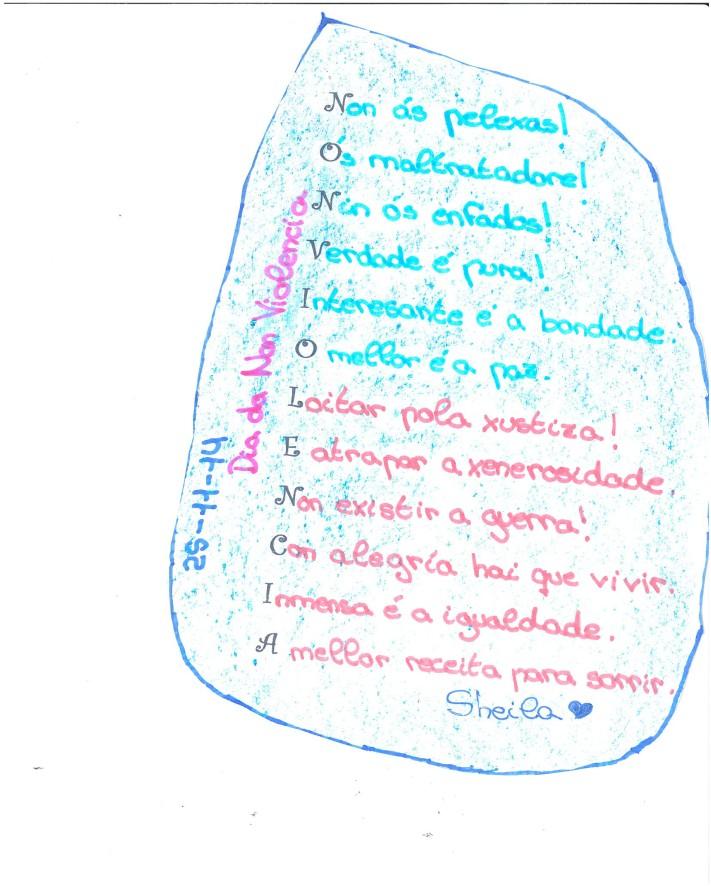 Non ás pelexas!
Ós maltratadore!
Nin ós enfados!
Verdade é pura!
Interesante é a bondade.
O mellor é a paz.
Loitar pola xustiza!
E atrapar a xenerosidade.
Non existir a guerra!
Con alegría hai que vivir.
Inmensa é a igualdade.
A mellor receita para sorrir.
Sheila
Dia da Non Violencia
25-11-14